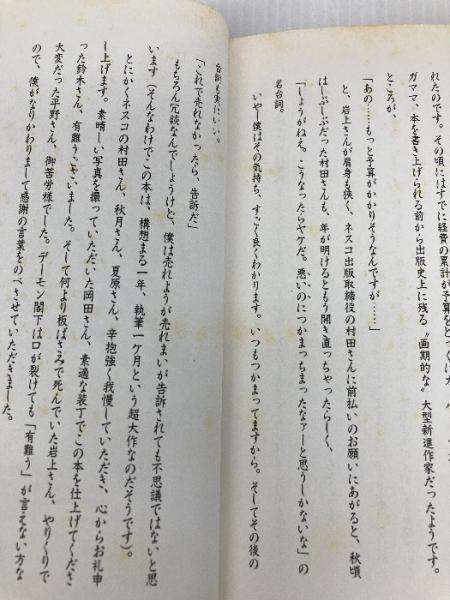 れたのです。その頃にはすでに経費の累計が予算を
ガママ、本を書き上げられる前から出版史上に残る〝画期的な〟大型新進作家だったようです。
ところが、
「あの……もっと予算がかかりそうなんですが……」
と、岩上さんが肩身も狭く、ネスコ出版取締役の村田さんに前払いのお願いにあがると、秋頃
はしぶしぶだった村田さんも、年が明けるともう開き直っちゃったらしく、
「しょうがねえ。こうなったらヤケだ。悪いのにつかまっちまったなァーと思うしかないな」の
名台詞。
いやー僕はその気持ち、すごく良くわかります。いつもつかまってますから。そしてその後の
台詞も実にいい。
「これで売れなかったら、告訴だ」
もちろん冗談なんでしょうけど、僕は売れようが売れまいが告訴されても不思議ではないと思
います（そんなわけでこの本は、構想まる一年、執筆一ケ月という超大作なのだそうです）。
とにかくネスコの村田さん、秋月さん、夏原さん、辛抱強く我慢していただき、心からお礼申
し上げます。素晴しい写真を撮っていただいた岡田さん、素適な装丁でこの本を仕上げてくださ
った鈴木さん、有難うございました。そして何より板ばさみで死んでいた岩上さん、やりくりで
大変だった平野さん、御苦労様でした。デーモン閣下は口が裂けても「有難う」が言えない方な
ので、僕がなりかわりまして感謝の言葉をのべさせていただきました。